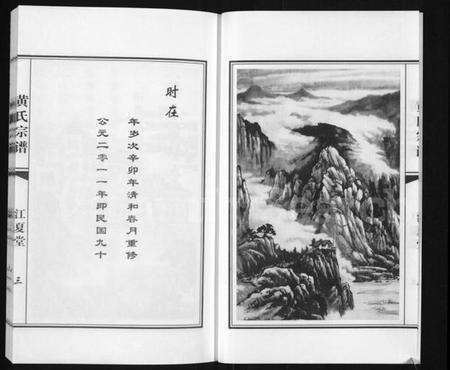 时在
年岁次辛卯年清和春月重修
公元二零一一年即民国九十
黄氏宗谱
江夏堂
三